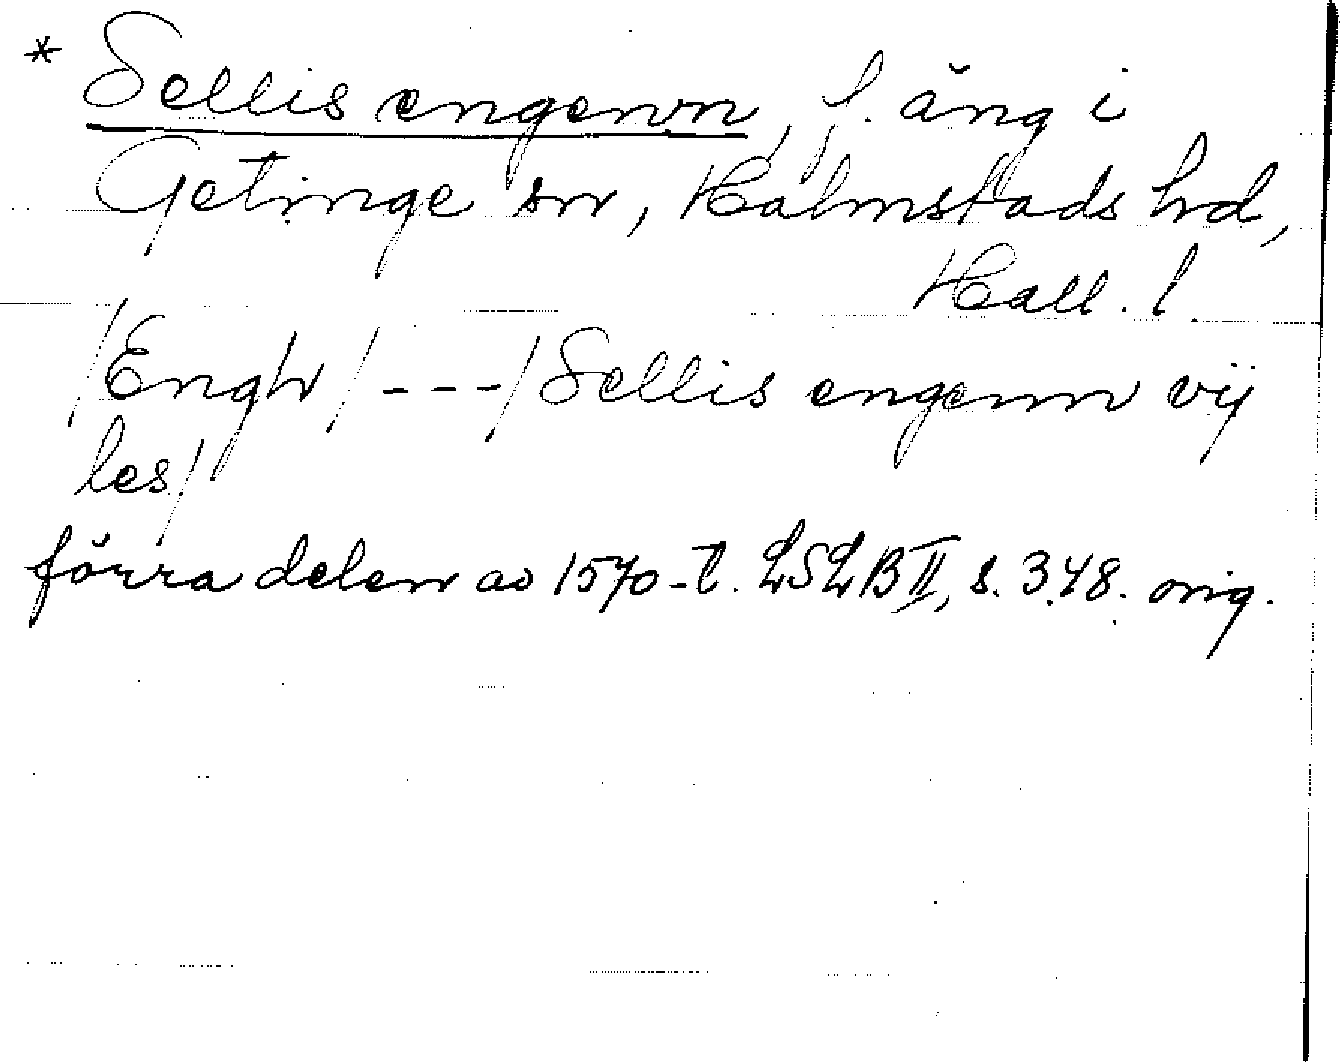 * Sellis engenn, f. äng i
Getinge sn, Halmstads hd,
Hall. l.
/Engh/ --- / Sellis engenn vij
les/
förra delen av 1570-t. LSLB II, s. 348. orig.